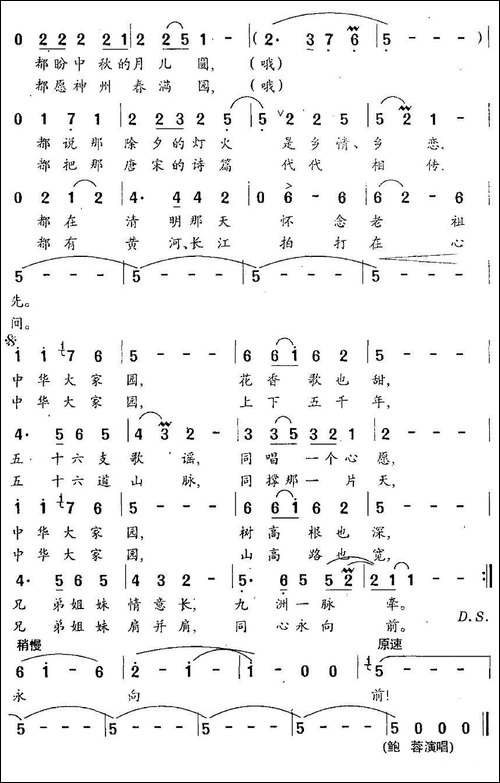 0 2 2 2 2 2 1 2 2 5 1 - - ( 2 · 3 7 6 5 - - )
都盼中秋的月儿圆, (哦)
都愿神州春满园, (哦)
0 1 7 1 2 2 3 2 5 5 2 2 5 5 2 1 -
都说那除夕的灯火是乡情、乡恋.
都把那唐宋的诗篇代代相传.
0 2 1 2 4 · 4 4 2 0 6 - 6 6 2 - 6
都在清明那天怀念老祖
都有黄河、长江拍打在心
5 - - - 5 - - - 5 - - - 5 - - - 5 - - -
先。
间。
1 1 7 6 5 - - - 6 6 1 6 2 5 - - -
中华大家园, 花香歌也甜,
中华大家园, 上下五千年,
4 · 5 6 5 4 3 2 - 3 3 5 3 2 1 2 - - -
五十六支歌谣, 同唱一个心愿,
五十六道山脉, 同撑那一片天,
1 1 7 6 5 - - - 6 6 1 6 2 5 - - -
中华大家园, 树高根也深,
中华大家园, 山高路也宽,
4 · 5 6 5 4 2 2 - 5 · 6 5 5 2 2 1 1 - - :||
兄弟姐妹情意长, 九洲一脉牵。
兄弟姐妹肩并肩, 同心永向前。
D.S.
稍慢 原速
6 1 - 6 2 - 1 - 1 - 0 0 5 - - -
永向前!
5 - - - 5 - - - 5 - - - 5 - - - 5 0 0 0
(鲍 蓉演唱)